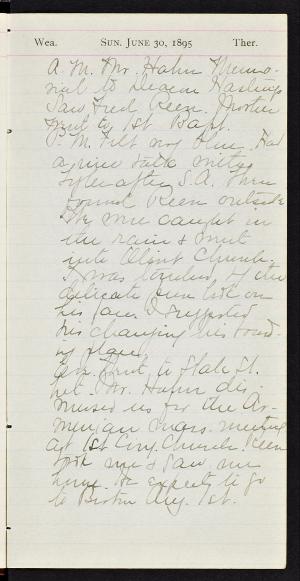 Wea. SUN. JUNE 30, 1895 Ther.
A. M. Mr. Hahn Memo-
rial to Deacon Hastings
Saw Fred Keen. Mother
went to 1st Bapt.
P. M. Felt very blue. Had
a nice talk with
Tyler after S.S. Then
found Keen outside
We were caught in
the rain & went
into Church.
I was the
delicate look on
his face. I suggested
his changing his board-
ing place.
Eve. Went to State St.
but Mr. Hahn dis-
missed us for the Ar-
menian mass. meeting
at 1st Cong. Church. Keen
took me & saw me
home. He expects to go
to Boston Aug. 1st.